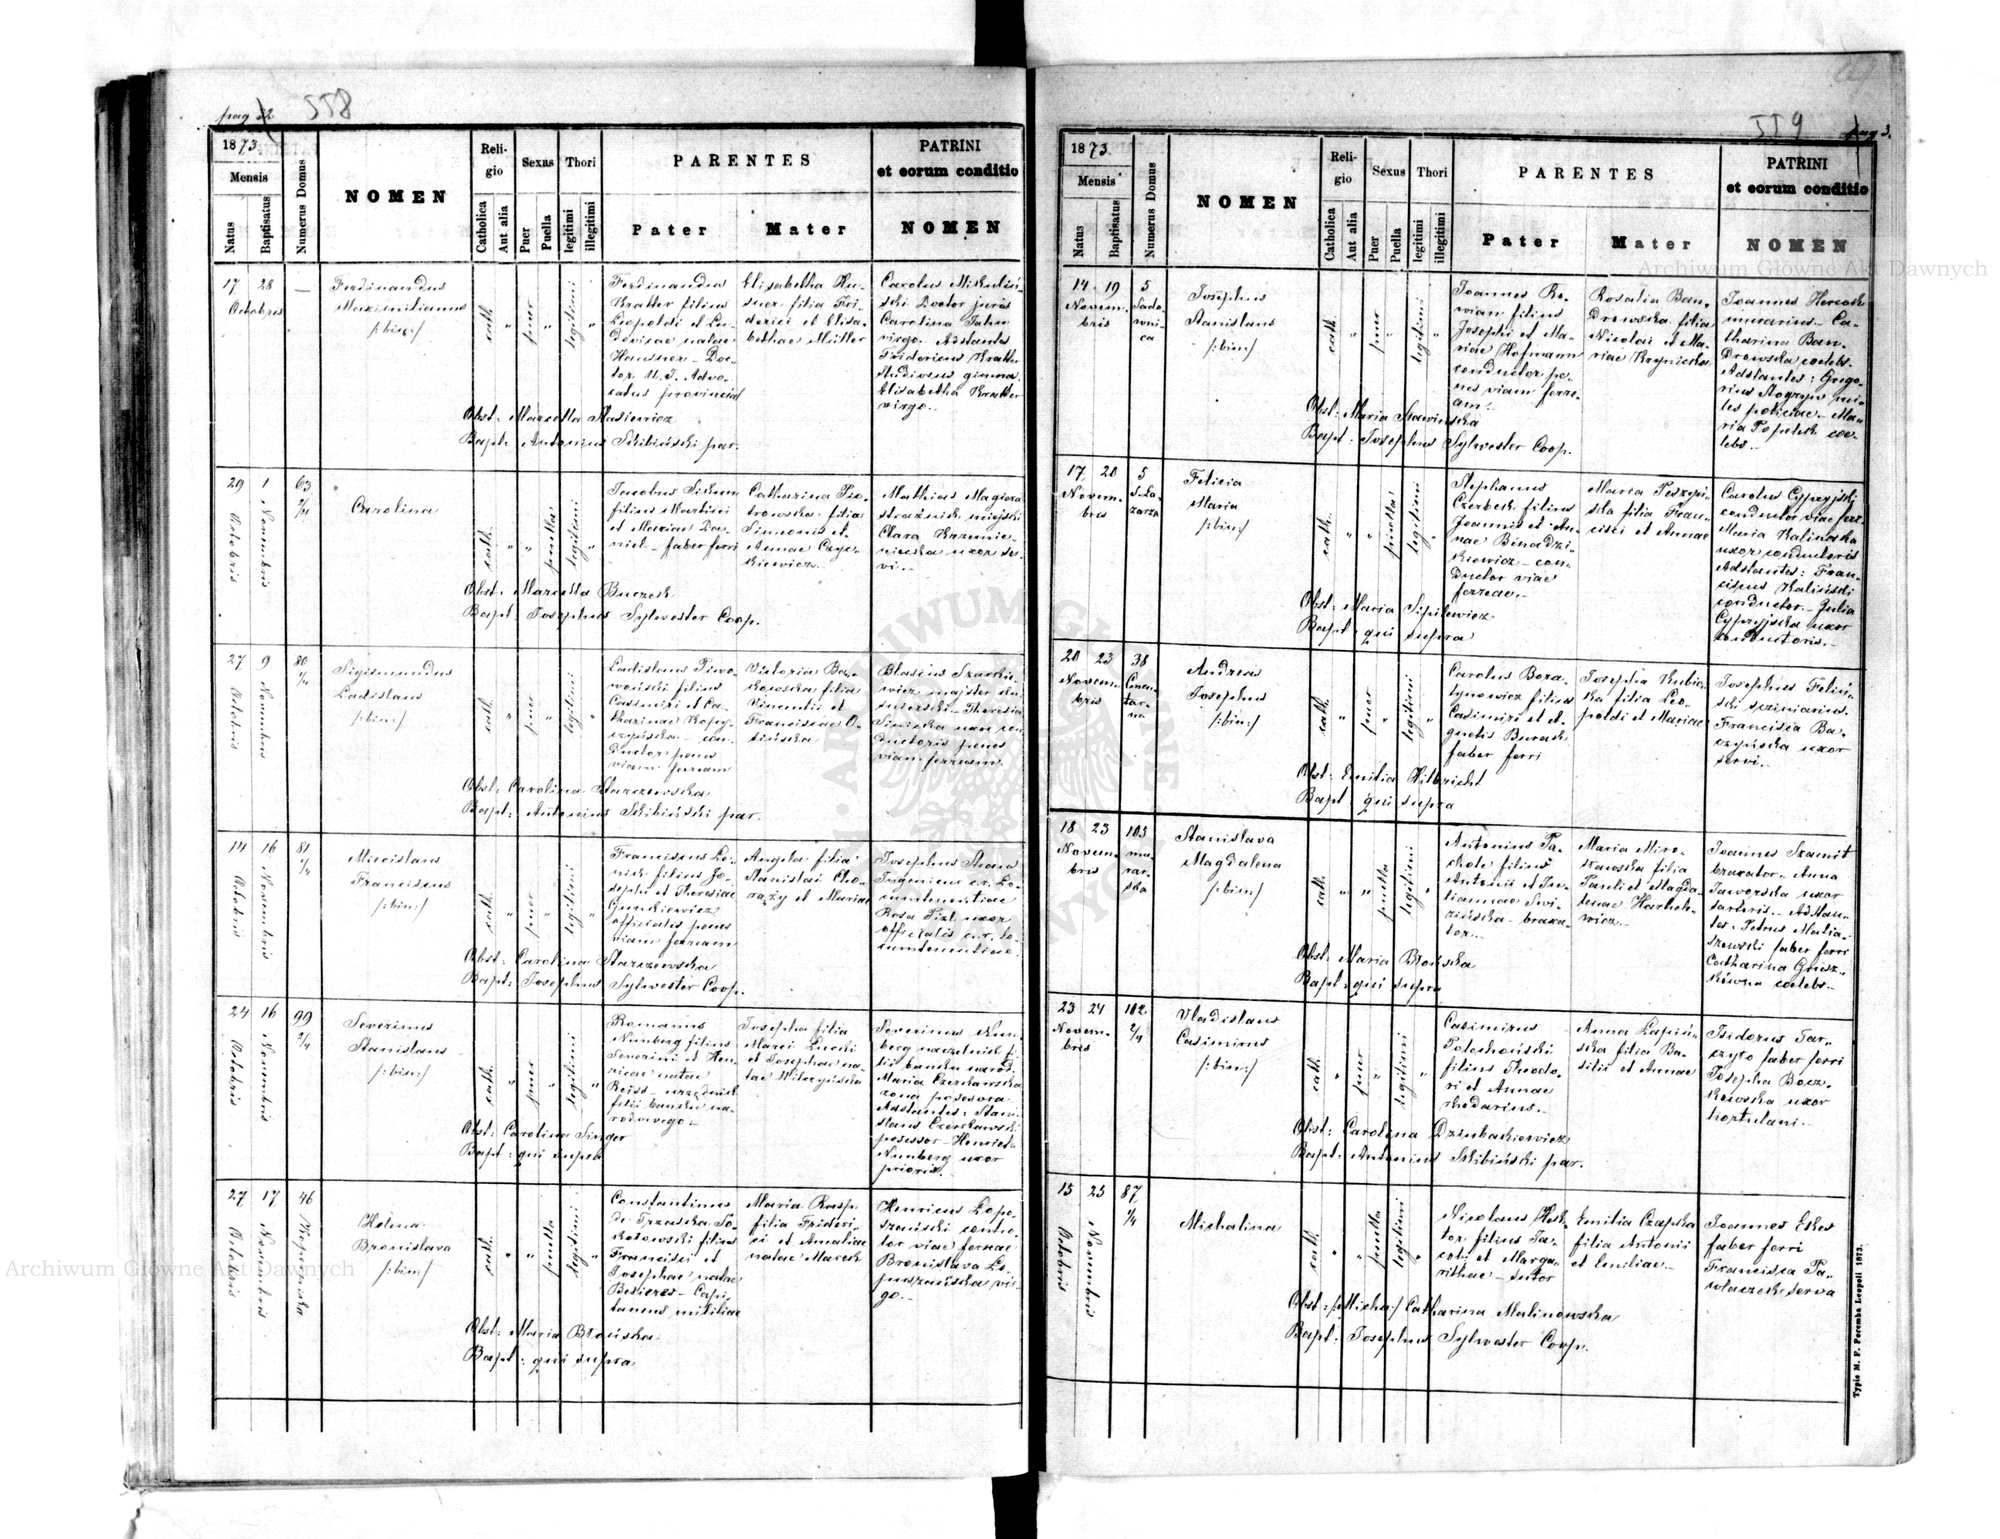 pag 22
558
1873.
Mensis
Natus
Baptisatus
Numerus Domus
NOMEN
Religio
Catholica
Aut alia
Sexus
Puer
Puella
Thori
legitimi
illegitimi
PARENTES
Pater
Mater
PATRINI
et eorum conditio
NOMEN
17 28 —
Octobris
Ferdinandus
Maximilianus
/:bin:/
cath. " puer " legitimi "
Ferdinandus
Kratter filius
Leopoldi et Lu-
dovicae natae
Hausner - Doc-
tor U. J. Advo-
catus provincial
Elisabetha Hu-
filia Fri-
derici et Elisa-
bethae Müller
Carolus Mikuliń-
ski Doctor juris
Carolina Jahn
virgo. Adstantes
Fridericus Kratter
Studiosus gimna.
Elisabetha Kratter
virgo.
Obst: Marcella Stasiewicz
Bapt: Antonius Skibiński par.
29 1 63 2/4
Octobris
Novembris
Carolina
cath. " " puella legitimi "
Jacobus
filius Martini
et Mariae Da-
niel - faber ferri
Catharina Pio-
trowska filia
Simeonis et
Annae
kiewicz.
Mathias Magiera
strażnik miejski
Clara Krzemie-
niecka uxor ser-
vi.
Obst. Marcella Buczek
Bapt. Josephus Sylwester Coop.
27 9 80 1/4
Octobris
Novembris
Sigismundus
Ladislaus
/:bin:/
cath. " puer " legitimi "
Ladislaus Piwo-
woński filius
Casimiri et Ca-
tharinae Kopy-
czyńska - con-
ductor penes
viam ferream
Victoria
filia
Vincentii et
Franciscae O-
sińska
Blasius Szarkie-
wicz majster ku-
śnierski - Theresia
uxor con-
ductoris penes
viam ferream.
Obst: Carolina Starczewska
Bapt: Antonius Skibiński par.
14 16 81 1/4
Octobris
Novembris
Miecislaus
Franciscus
/:bin:/
cath. " puer " legitimi "
Franciscus Lo-
filius Jo-
sephi et Theresiae
Gunkiewicz
officialis penes
viam ferream
Angela filia
Stanislai Cho-
rąży et Mariae
Josephus
Ingenieur c.r. Lo-
cumtenentiae
Rosa uxor
officialis c.r. lo-
cumtenentiae.
Obst: Carolina Starczewska
Bapt: Josephus Sylwester Coop.
24 16 99 2/4
Octobris
Novembris
Severinus
Stanislaus
/:bin:/
cath. " puer " legitimi "
Romanus
Nunberg filius
Severini et Hen-
ricae natae
Reiss - urzędnik
filii banku na-
rodowego -
Josepha filia
Marci Lucki
et Josephae na-
tae Milczyńska
Severinus Nun-
berg naczelnik fi-
lii banku narod.
Maria Czerkawska
żona posesora
Adstantes: Stani-
slaus Czerkawski
posessor - Henrica
Nunberg uxor
prioris.
Obst: Carolina Singer
Bapt: qui supra
27 17 46
Octobris
Novembris
Helena
Bronislava
/:bin:/
cath. " " puella legitimi "
Constantinus
de Trzaska So-
kołowski filius
Francisci et
Josephae natae
Besieres - Capi-
taneus militiae
Maria Rasp
filia Frideri-
ci et Amaliae
natae Marek
Henricus Łopu-
szański contro-
lor viae ferreae
Bronislava Ło-
puszańska vir-
go.
Obst: Maria Błońska
Bapt: qui supra
559
pag 3.
1873.
Mensis
Natus
Baptisatus
Numerus Domus
NOMEN
Religio
Catholica
Aut alia
Sexus
Puer
Puella
Thori
legitimi
illegitimi
PARENTES
Pater
Mater
PATRINI
et eorum conditio
NOMEN
14 19 5
Novem-
bris
Sado-
wni-
ca
Josephus
Stanislaus
/:bin:/
cath. " puer " legitimi "
Joannes Re-
filius
Josephi et Ma-
riae Hofmann
conductor pe-
nes viam ferre-
am.
Rosalia Ban-
drowska filia
Nicolai et Ma-
riae Krynicka
Joannes
murarius - Ca-
tharina Ban-
drowska coelebs.
Adstantes: Grego-
rius mi-
les policiae - Ma-
ria Popelek coe-
lebs.
Obst: Maria Stawińska
Bapt: Josephus Sylwester Coop.
17 20 5
Novem-
bris
S. Ła-
zarza
Felicia
Maria
/:bin:/
cath. " " puella legitimi "
Stephanus
Czerbek filius
Joannis et An-
nae Benadzi-
kiewicz - con-
ductor viae
ferreae.
Maria
filia Fran-
cisci et Annae
Carolus Cypryjski
conductor viae ferr.
Maria Kalinska
uxor conductoris
Adstantes: Fran-
ciscus Kaliński
conductor. - Julia
Cypryjska uxor
conductoris.
Obst: Maria Sipilewicz
Bapt: qui supra
20 23 38
Novem-
bris
Cmen-
tar-
na
Andreas
Josephus
/:bin:/
cath. " puer " legitimi "
Carolus Bora-
tynowicz filius
Casimiri et A-
gnetis Burack
faber ferri
Josepha Kubic-
ka filia Leo-
poldi et Mariae
Josephus Feliń-
ski
Francisca Ba-
czyńska uxor
servi.
Obst: Emilia Hilbricht
Bapt: qui supra
18 23 103
Novem-
bris
mu-
rar-
ska
Stanislava
Magdalena
/:bin:/
cath. " " puella legitimi "
Antonius Pa-
chole filius
Antonii et Ju-
liannae Swi-
zińska - braxa-
tor.
Maria Miro-
sławska filia
Pauli et Magda-
lenae
wicz.
Joannes Szamit
braxator. Anna
Jaworska uxor
sartoris. Adstan-
tes: Petrus Matia-
szewski faber ferri
Catharina Grusz-
kówna coelebs.
Obst: Maria Błońska
Bapt: qui supra
23 24 102 2/4
Novem-
bris
Vladislaus
Casimirus
/:bin:/
cath. " puer " legitimi "
Casimirus
filius Theodo-
ri et Annae
rhedarius.
Anna Łapiń-
ska filia Ba-
silii et Annae
Isidorus Tar-
czyło faber ferri
Josepha Bocz-
kowska uxor
hortulani.
Obst: Carolina Dzinbachiewicz
Bapt: Antonius Skibiński par.
15 25 87 2/4
Octobris
Novembris
Michalina
cath. " " puella legitimi "
Nicolaus
filius Ja-
cobi et Marga-
rithae - sutor
Emilia Czapska
filia Antonii
et Emiliae -
Joannes Ekes
faber ferri
Francisca Pa-
wlaczek serva
Obst: /:Micha:/ Catharina Malinowska
Bapt: Josephus Sylwester Coop.
Typis M. F. Poremba Leopoli 1873.
Archiwum Główne Akt Dawnych
Archiwum Główne Akt Dawnych
ARCHIWUM GŁÓWNE AKT DAWNYCH